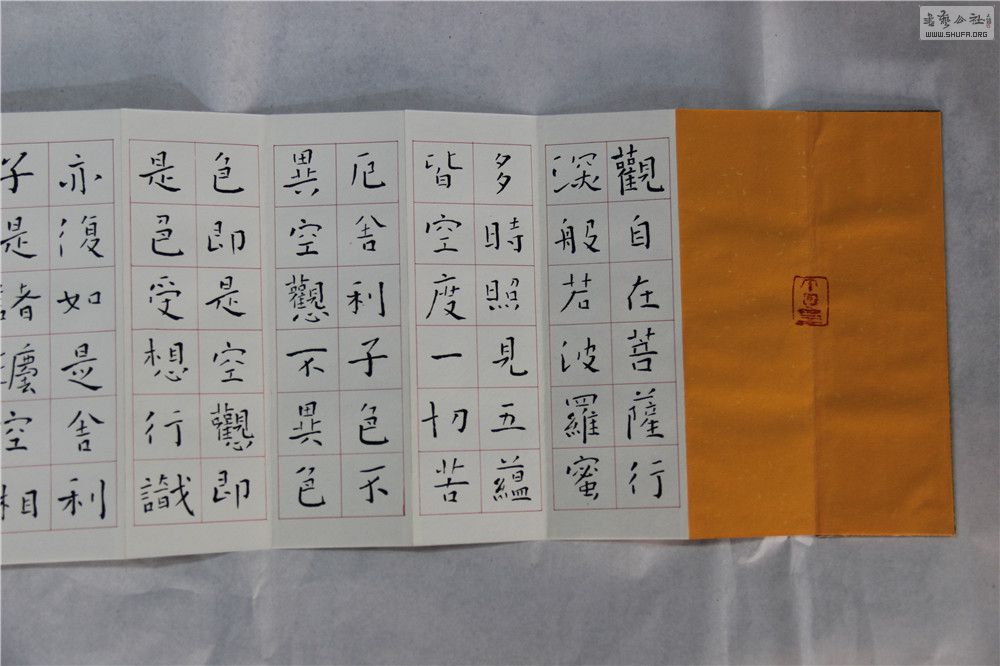 觀自在菩薩行
深般若波羅蜜
多時照見五蘊
皆空度一切苦
厄舍利子色不
異空觀不異色
色即是空觀即
是色受想行識
亦復如是舍利
子是諸灋空相
書藝公社
WWW.SHUFA.ORG